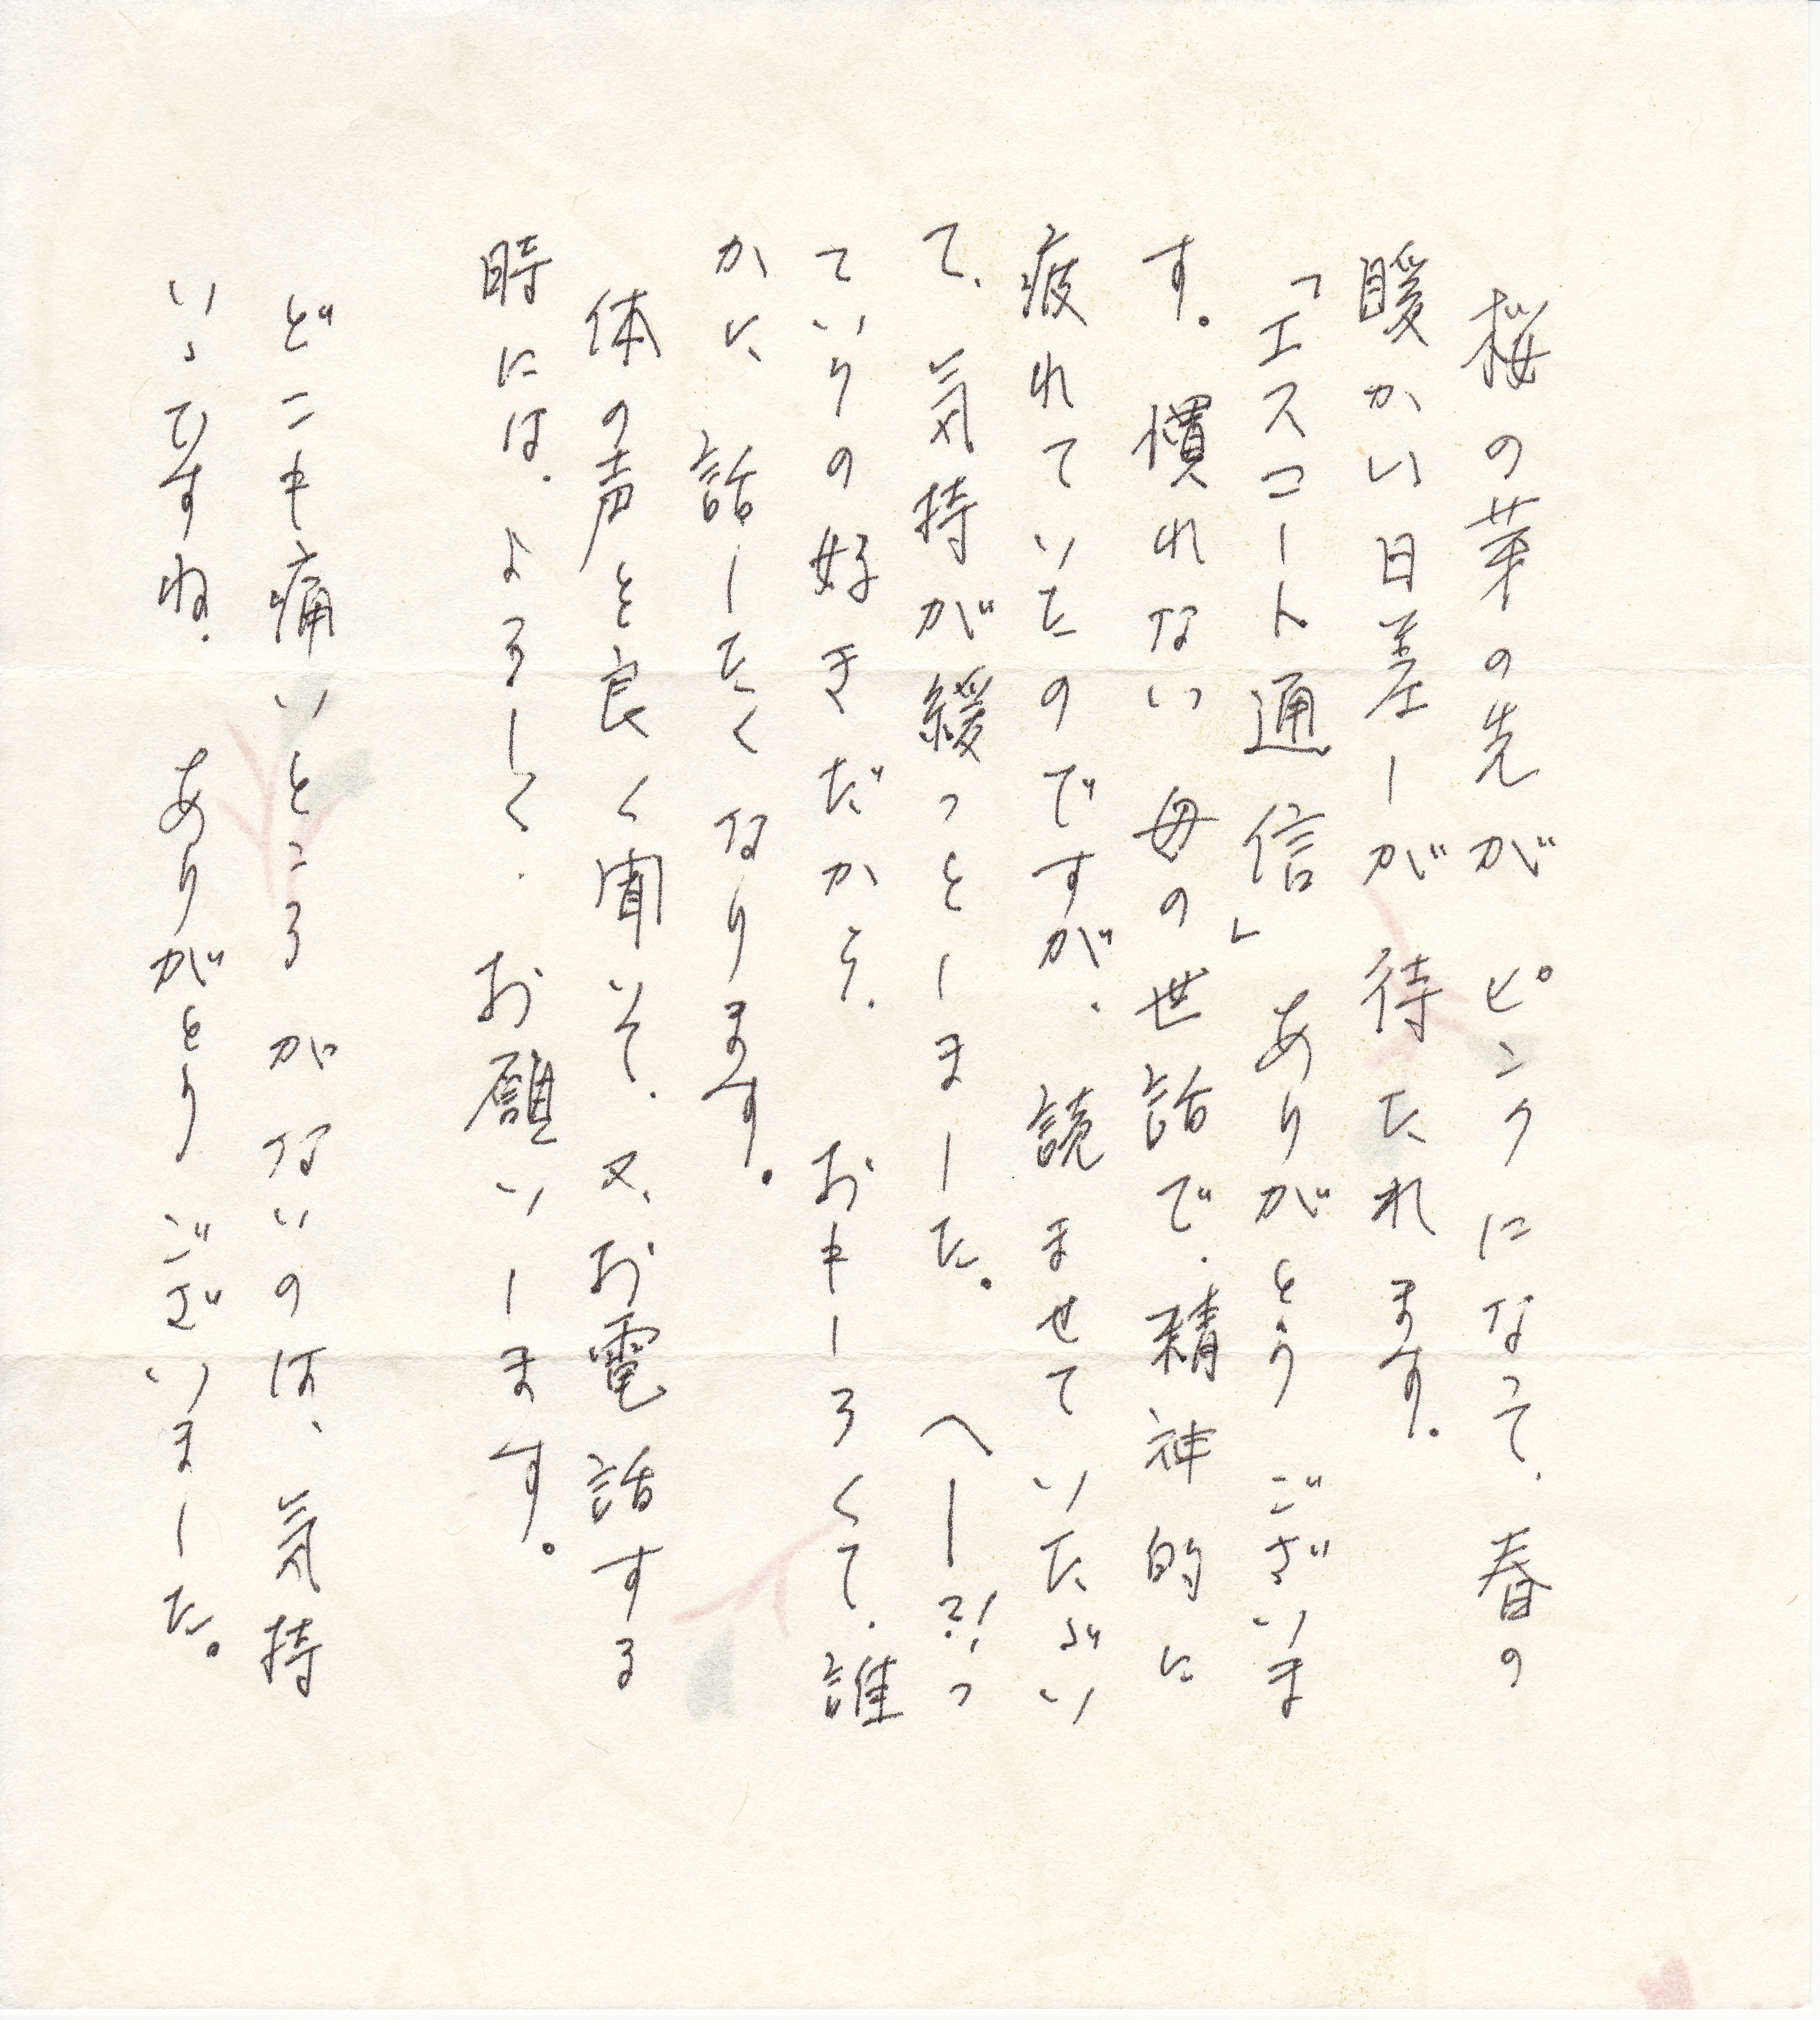 桜の芽の先がピンクになって、春の
暖かい日差しが待たれます。
「エスコート通信」ありがとうございま
す。慣れない母の世話で、精神的に
疲れていたのですが、読ませていただい
て、気持が緩っとしました。へー?!っ
ていうの好きだから、おもしろくて、誰
かに話したくなります。
体の声を良く聞いて、又、お電話する
時には、よろしく、お願いします。
どこも痛いところがないのは、気持
いゝですね、ありがとうございました。